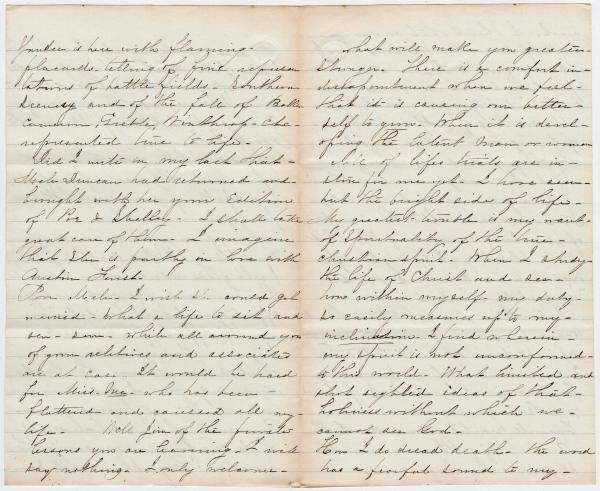 Yankee is here with flaming
placards telling of fine represen
tations of battle fields - Southern
Scenery and of the fall of
Cameron, Greble, Winthrop &c
represented true to life -
Did I write in my last that
Mate Duncan had returned and
brought with her your Edition
of Poe & Shelley - I shall take
great care of them - I imagine
that she is partly in love with
Austin
Poor Mate - I wish she could get
married - what a life to sit and
sew - sew - while all around you
of your relatives and associates
are at ease. It would be hard
for Miss Me - who has been
flattered and caressed all my
life - Well Jim of the private
lessons you are learning - I will
say nothing - I only welcome -
what will make you greater -
Stronger. There is a comfort in -
despondment when we feel -
that it is causing our better -
self to grow. When it is devel -
oping the latent man or woman
of lifes trials are in
store for me yet. I have seen -
but the bright side of life -
My greatest trouble is my want -
of Spirituality of the true -
christian spirit. When I study -
the life of Christ and see -
how within myself - my duty -
so easily measures up to my -
inclination I find wherein -
my spirit is not unconformed -
to this world. What limited and
short sighted ideas of that -
holiness without which we -
cannot see God -
How I do dread death - the word
has a fearful sound to my -